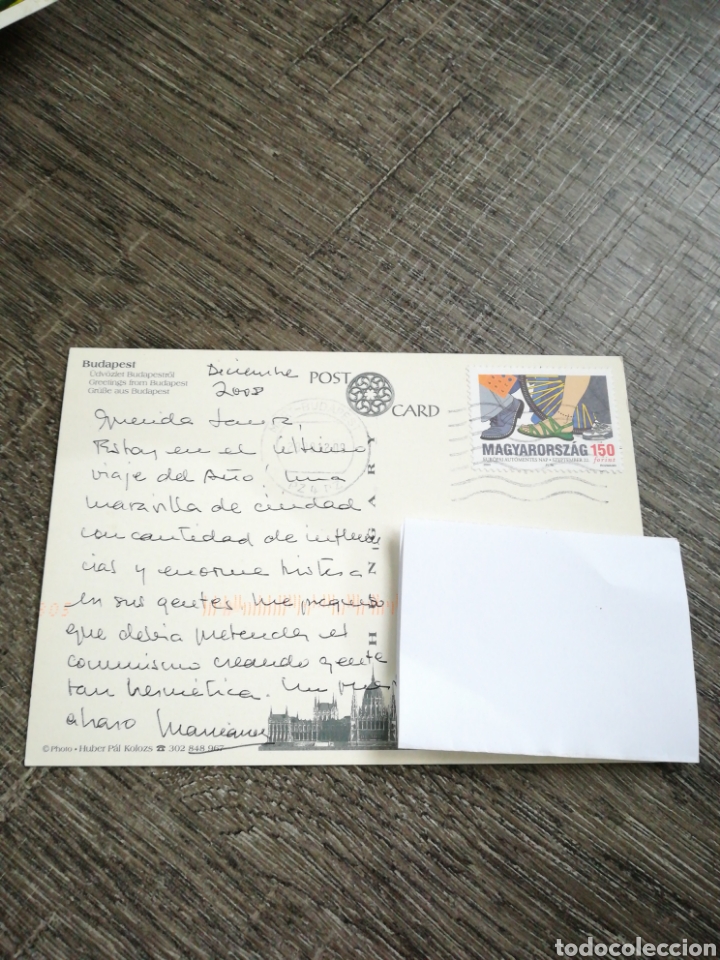 Budapest
Üdvözlet Budapestről
Greetings from Budapest
Grüße aus Budapest
Diciembre
2008
POST
CARD
MAGYARORSZÁG 150
forint
HUNGARY
Querida
Estoy en el último
viaje del Año. Una
maravilla de ciudad
con cantidad de influen
cias y enorme tristeza
en sus gentes. Me pregunto
que debia pretender el
comunismo creando gente
tan hermética. Un
abrazo
© Photo • Huber Pál Kolozs ☎ 302 848 967
todocoleccion